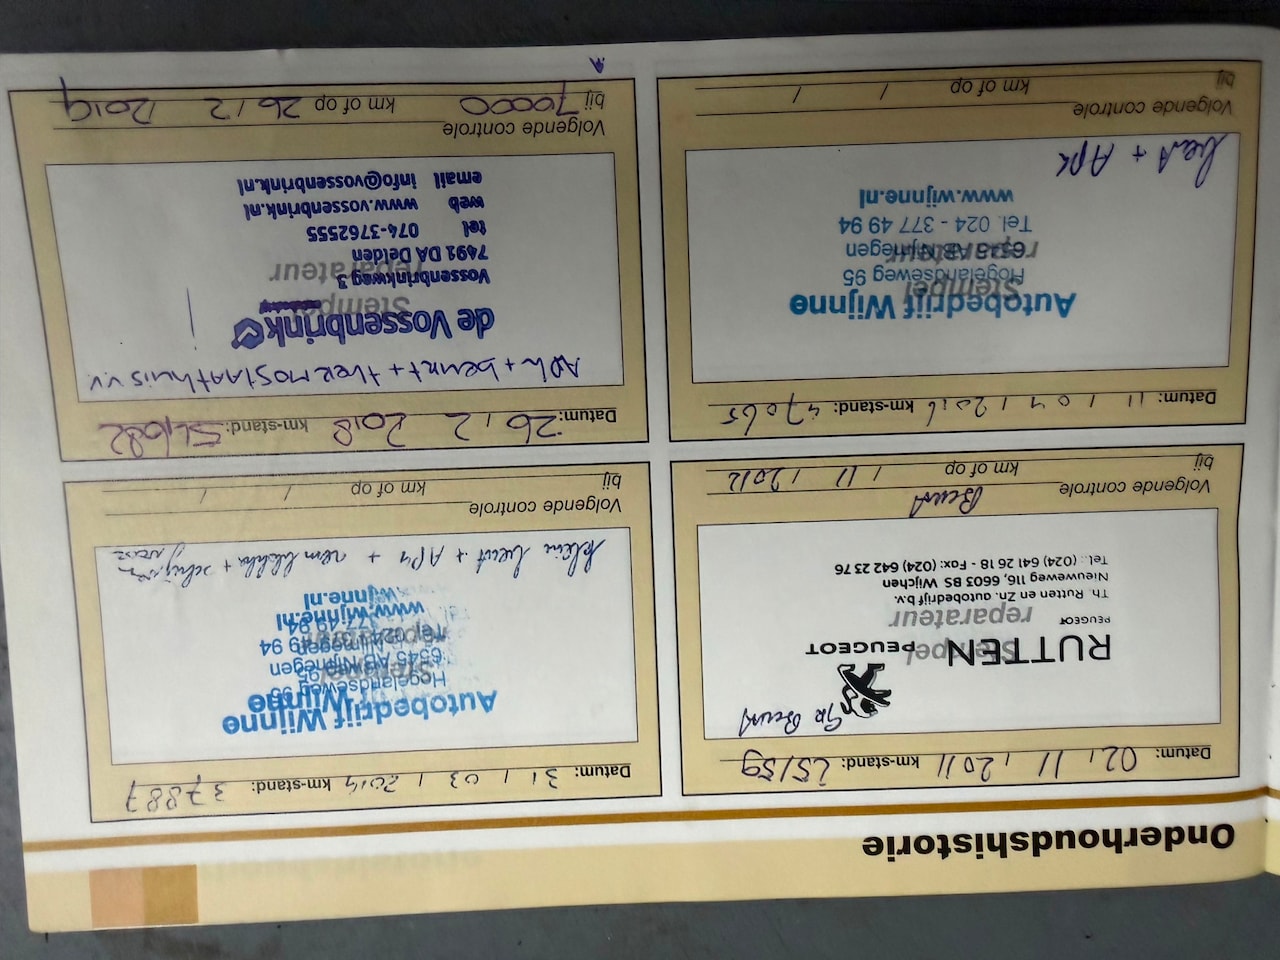 Onderhoudshistorie
Datum: 02 / 11 / 2011 km-stand: 25159
Gr Beurt
PEUGEOT
RUTTEN
PEUGEOT
Stempel
reparateur
Th. Rutten en Zn. autobedrijf b.v.
Nieuweweg 116, 6603 BS Wijchen
Tel.: (024) 641 26 18 - Fax: (024) 642 23 76
Volgende controle Beurt
bij km of op / 11 / 2012
Datum: 31 / 03 / 2014 km-stand: 37887
Autobedrijf Wijnne
Hogelandseweg 95
6545 AB Nijmegen
Tel. 024 - 377 49 94
www.wijnne.nl
Stempel
klein beurt + APK + remblokken + schijven
Volgende controle
bij km of op / /
Datum: 11 / 04 / 2016 km-stand: 47065
Autobedrijf Wijnne
Stempel
Hogelandseweg 95
reparateur
6545 AB Nijmegen
Tel. 024 - 377 49 94
www.wijnne.nl
beurt + Apk
Volgende controle
bij km of op / /
Datum: 26 / 2 2018 km-stand:
APK + beurt + thermostaathuis v.v.
de Vossenbrink
autobedrijf
Stempel
reparateur
Vossenbrinkweg 3
7491 DA Delden
tel 074-3762555
web www.vossenbrink.nl
email info@vossenbrink.nl
Volgende controle
bij 70000 km of op 26 / 2 2019